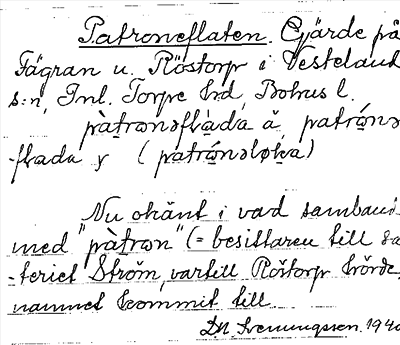 Patroneflaten. Gjärde på
Fägran u. Röstorp i Vesteland
s:n, Inl. Torpe hd, Bohus l.
pàtronəflàda ä, patrónə
-flada y (patrónsløka)
Nu okänt i vad samband
med "pàtron" (= besittaren till sä
-teriet Ström, vartill Röstorp hörde,
namnet kommit till.
DN Svenungsson. 1940